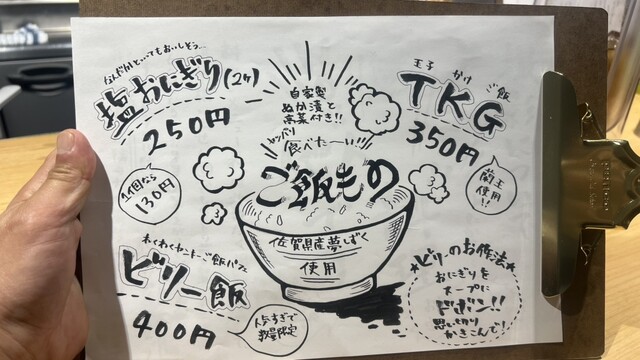 なんだかんだいってもおいしそう…
塩おにぎり(2ケ)
250円
1個なら
130円
自家製
ぬか漬と
赤菜付き!!
王子 かけ ご飯
TKG
350円
蘭王
使用!!
ヤッパリ
食べたーい!!
ご飯もの
佐賀県産夢しずく
使用
ビリー飯
400円
人気すぎて
数量限定
★ビリーのお作法★
おにぎりを
スープに
ドボン!!
思いっ切り
かきこんで!